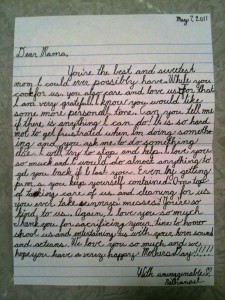 May 7, 2011
Dear Mama,
You're the best and sweetest
mom I could ever possibly have. While you
cook for us, you also care and love us for that
I am very grateful. I know you would like
some more personal love. Can you tell me
if there is anything I can do? It is so hard
not to get frustrated when I'm doing someth-
ing and you ask me to do something
else. I will try to stop and help. I love you
so much and I would do almost anything to
get you back if I lost you. Even by getting
you keep yourself contained. On top
of taking care of us and cleaning for us
you ever take messes! You're so
kind to us. Again, I love you so much.
Thank you for sacrificing your time to home
school us and entertaining us with your sound
and actions. We love you so much and we
hope you have a very happy Mother's Day!!!!!
With unimaginable
Nathanael